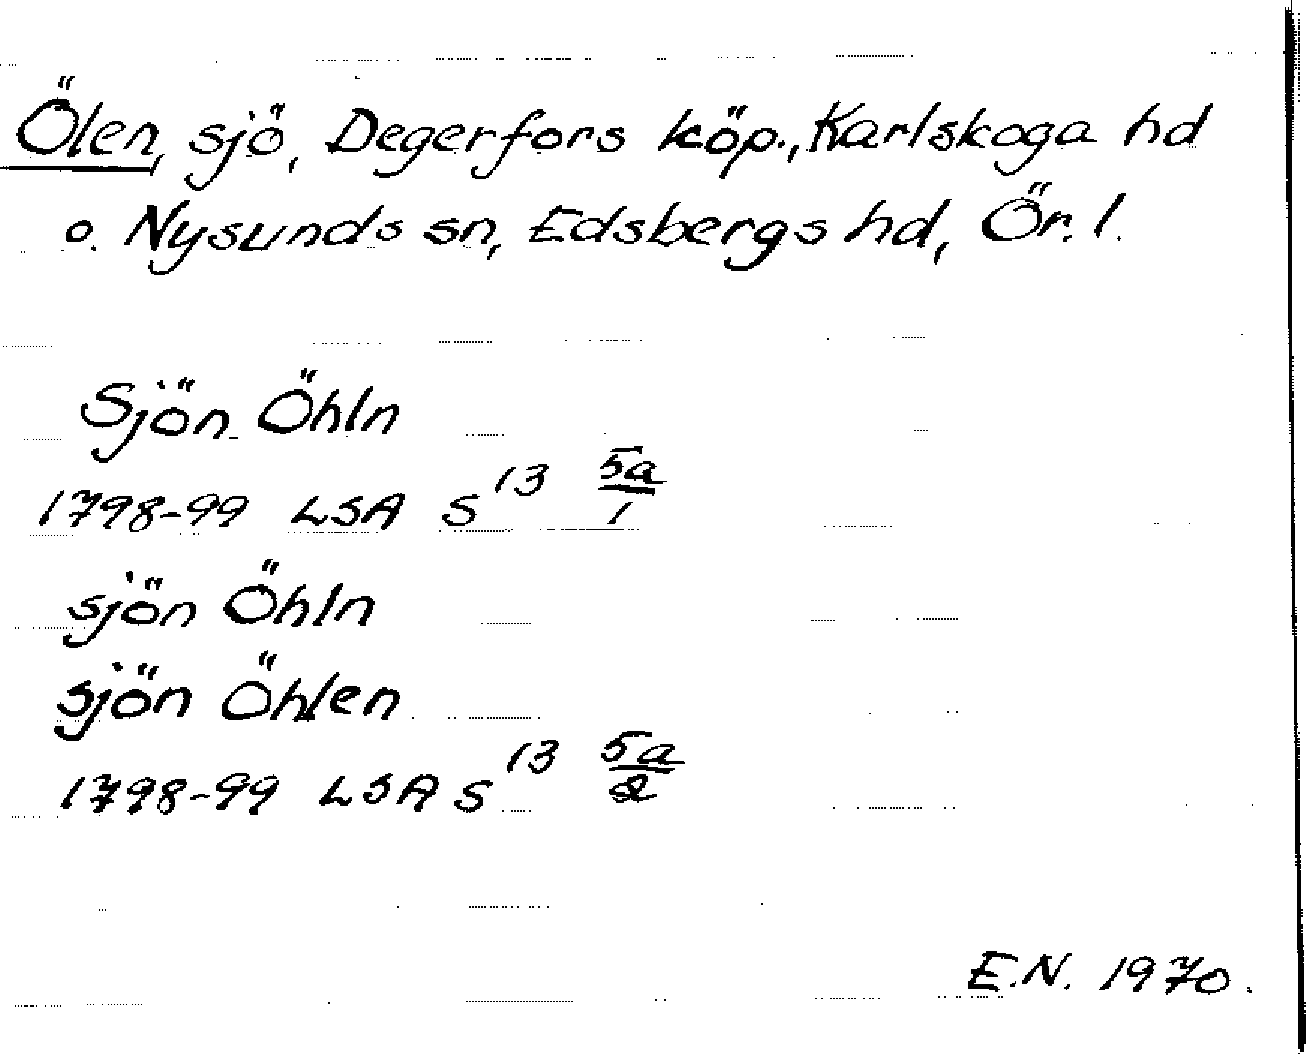 Ölen, sjö, Degerfors köp., Karlskoga hd
o. Nysunds sn, Edsbergs hd, Ör. l.
Sjön Öhln
1798-99 LSA S 13 5a/1
sjön Öhln
sjön Öhlen
1798-99 LSA S 13 5a/2
E.N. 1970.